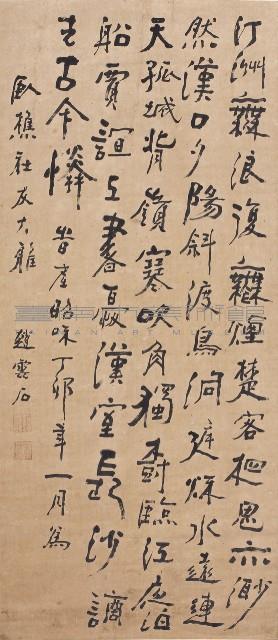 汀洲無浪復無煙楚客相思亦渺
然漢口夕陽斜渡鳥洞庭秋水遠連
天孤城背嶺寒吹角獨樹臨江夜泊
船賈誼上書憂漢室長沙謫
去古今憐 丁卯年一月為
臥樵社友大雅 趙雲石
TAINAN ART MUSEUM